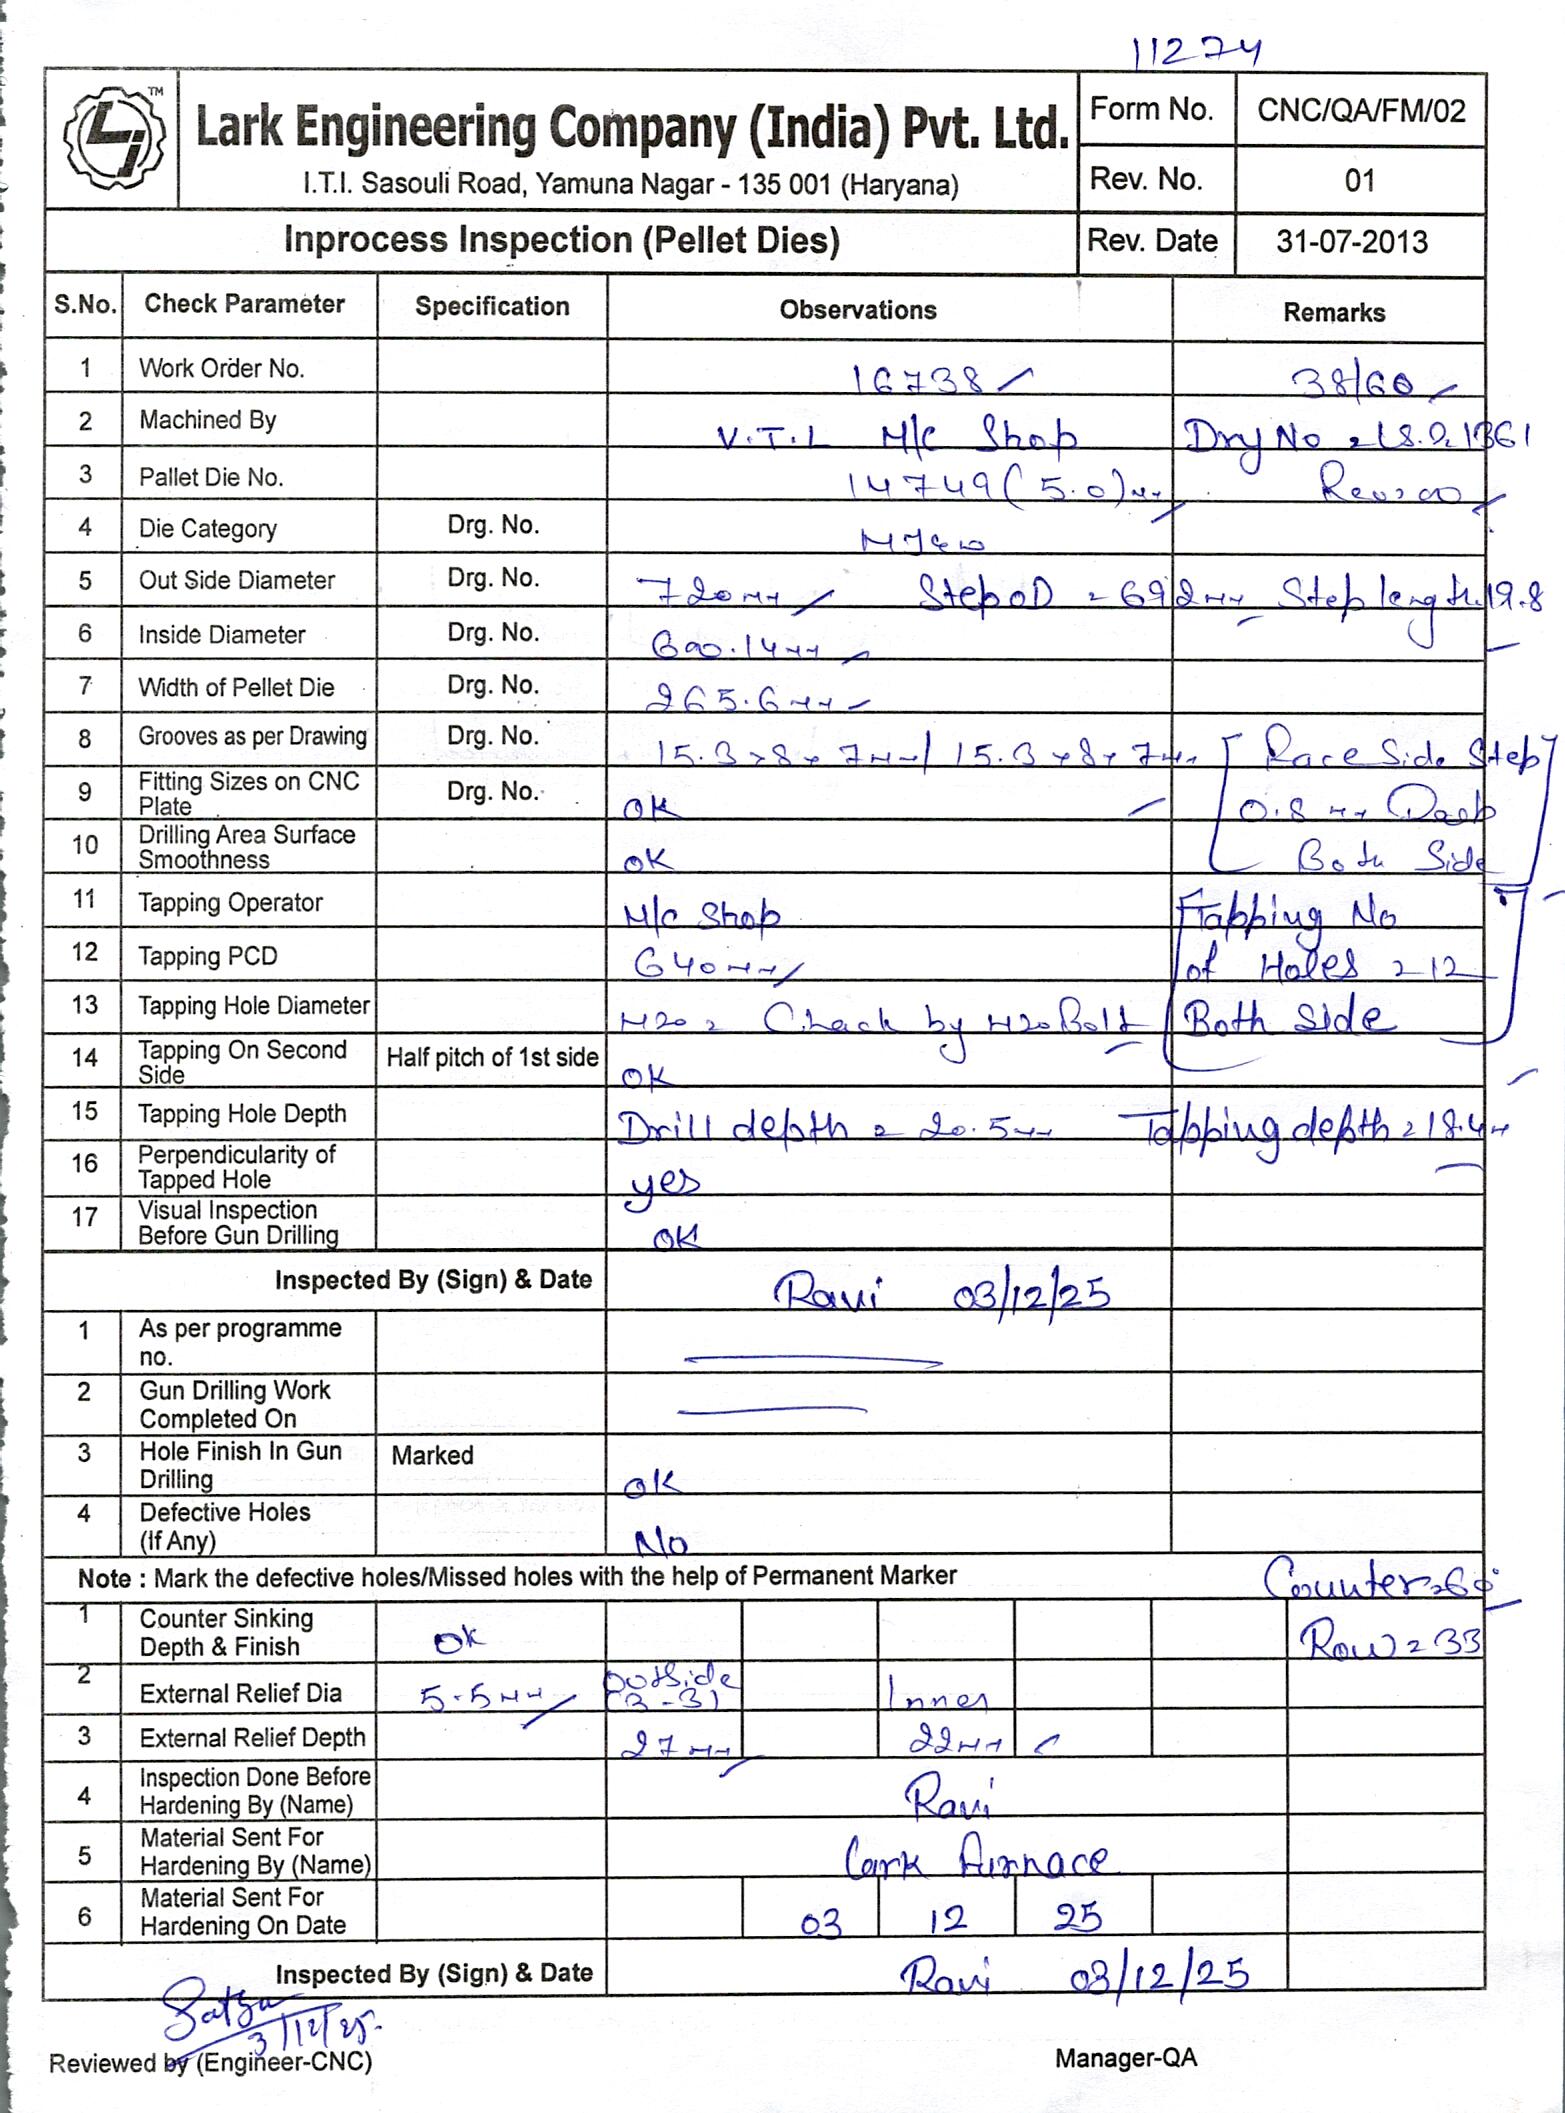 11274
TM
Lark Engineering Company (India) Pvt. Ltd.
I.T.I. Sasouli Road, Yamuna Nagar - 135 001 (Haryana)
Form No. CNC/QA/FM/02
Rev. No. 01
Inprocess Inspection (Pellet Dies)
Rev. Date 31-07-2013
S.No. Check Parameter Specification Observations Remarks
1 Work Order No. 16738 38/60
2 Machined By V.T.L M/C Shop Drg No
3 Pallet Die No. 14749 (5.0)mm
4 Die Category Drg. No.
5 Out Side Diameter Drg. No. 720mm Step OD = 692mm Step length 19.8
6 Inside Diameter Drg. No. 600.14mm
7 Width of Pellet Die Drg. No. 265.6mm
8 Grooves as per Drawing Drg. No. 15.3×8×7mm/ 15.3×8×7mm [Race Side Step
9 Fitting Sizes on CNC Plate Drg. No. OK 0.8 mm Deep
10 Drilling Area Surface Smoothness OK Both Side]
11 Tapping Operator M/C Shop Tapping No
12 Tapping PCD 640mm of Holes = 12
13 Tapping Hole Diameter M20 = Check by M20 Bolt Both Side
14 Tapping On Second Side Half pitch of 1st side OK
15 Tapping Hole Depth Drill depth = 20.5mm Tapping depth = 18.4mm
16 Perpendicularity of Tapped Hole yes
17 Visual Inspection Before Gun Drilling OK
Inspected By (Sign) & Date Ravi 03/12/25
1 As per programme no.
2 Gun Drilling Work Completed On
3 Hole Finish In Gun Drilling Marked OK
4 Defective Holes (If Any) No
Note : Mark the defective holes/Missed holes with the help of Permanent Marker Counter=60°
1 Counter Sinking Depth & Finish OK Row = 33
2 External Relief Dia 5.5mm Outside (3-3) Inner
3 External Relief Depth 27mm 22mm
4 Inspection Done Before Hardening By (Name) Ravi
5 Material Sent For Hardening By (Name) Lark Furnace
6 Material Sent For Hardening On Date 03 12 25
Inspected By (Sign) & Date Ravi 03/12/25
3/12/25
Reviewed by (Engineer-CNC)
Manager-QA